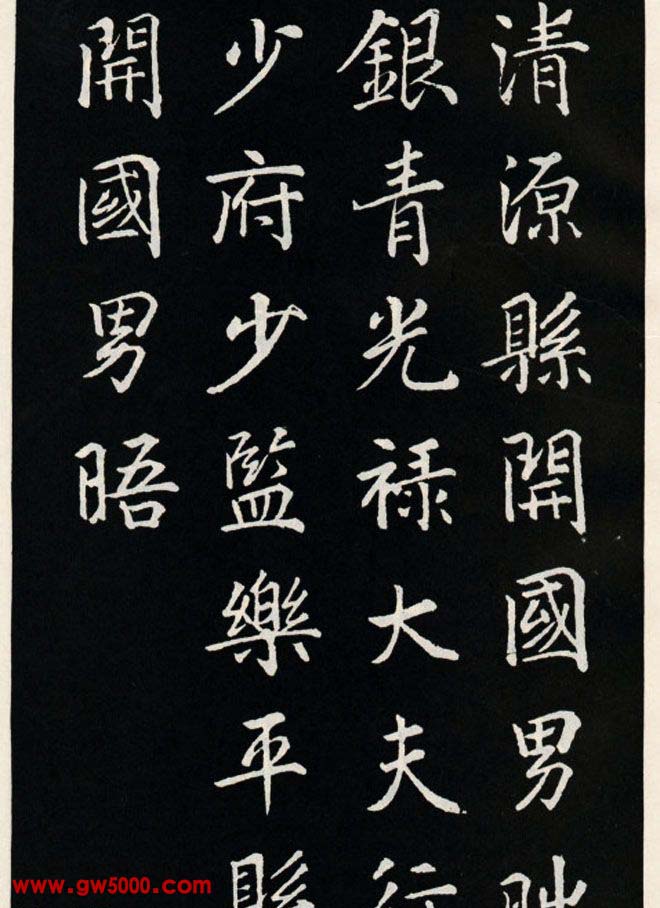 清源縣開國男
銀青光禄大夫行
少府少監樂平縣
開國男晤
www.gw5000.com